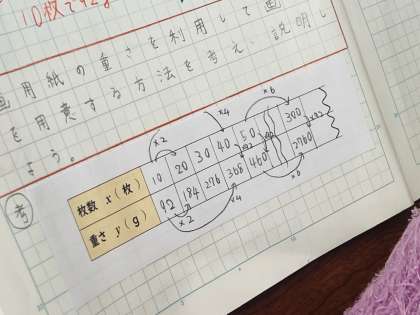 10枚で92g
画用紙の重さを利用して画
を用意する方法を考え、説明し
よう。
考
×2 ×4 ×6
枚数 x(枚) 10 20 30 40 50 300
×9.2
重さ y(g) 92 184 276 368 460 2760
×2 ×4 ×6